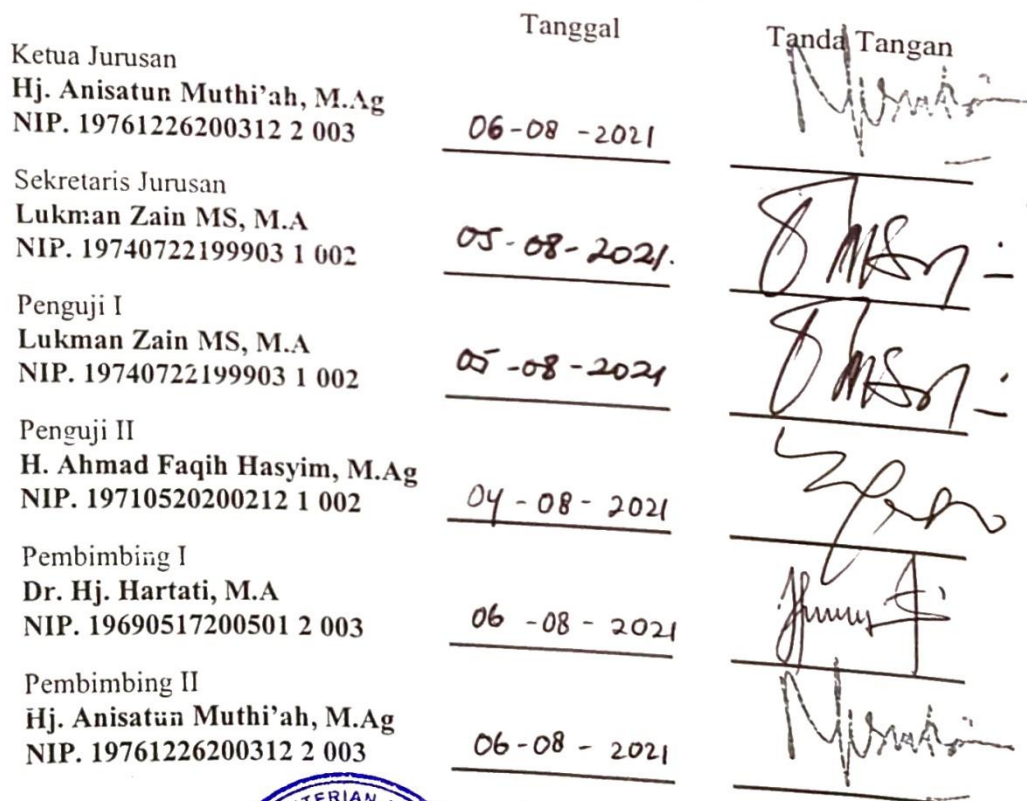 Tanggal Tanda Tangan
Ketua Jurusan
Hj. Anisatun Muthi'ah, M.Ag
NIP. 19761226200312 2 003 06-08-2021
Sekretaris Jurusan
Lukman Zain MS, M.A
NIP. 19740722199903 1 002 05-08-2021.
Penguji I
Lukman Zain MS, M.A
NIP. 19740722199903 1 002 05-08-2021
Penguji II
H. Ahmad Faqih Hasyim, M.Ag
NIP. 19710520200212 1 002 04-08-2021
Pembimbing I
Dr. Hj. Hartati, M.A
NIP. 19690517200501 2 003 06-08-2021
Pembimbing II
Hj. Anisatun Muthi'ah, M.Ag
NIP. 19761226200312 2 003 06-08-2021